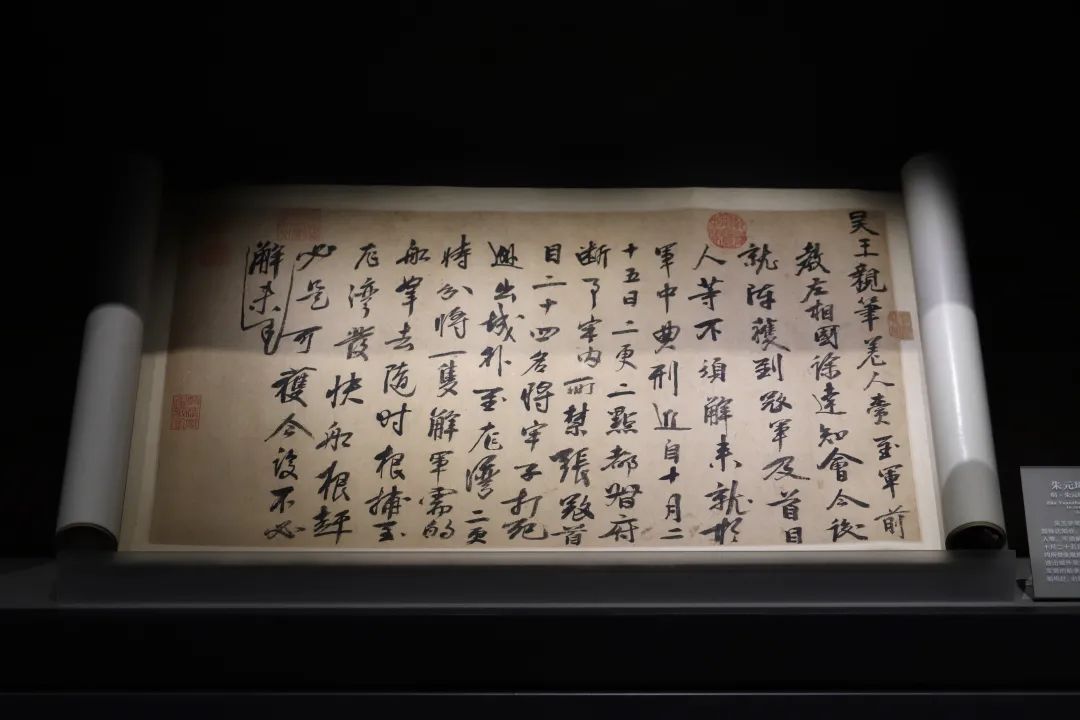 吴王親筆差人賫至軍前
教左相國徐達知會今後
就陣獲到寇軍及首目
人等不須解来就於
軍中典刑近自十月二
十五日二更二點都督府
断事牢内所禁張寇首
目二十四名将牢子打死
逃出城外至龙灣二更
時分将一隻解軍需的
船拏去随时根捕至
龙灣發快船根趕
必是可獲今後不必
解来至
朱元